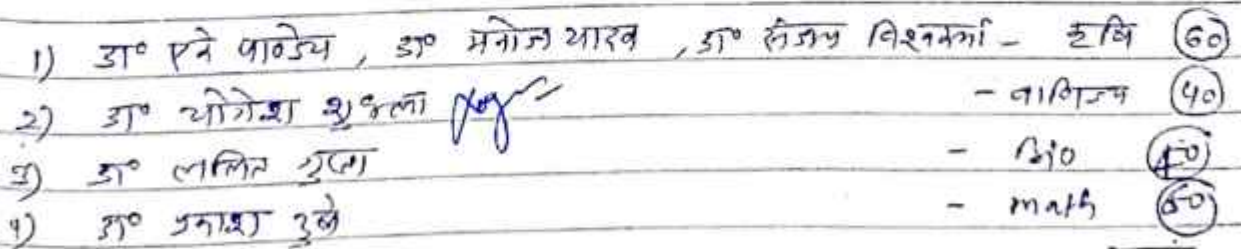 1) डा० एने पाण्डेय, डा० मनोज यादव, डा० संजय विश्वकर्मा - कृषि 60
2) डा० योगेश शुक्ला - वाणिज्य 40
3) डा० ललित गुप्ता - Bio
4) डा० प्रकाश दुबे - math